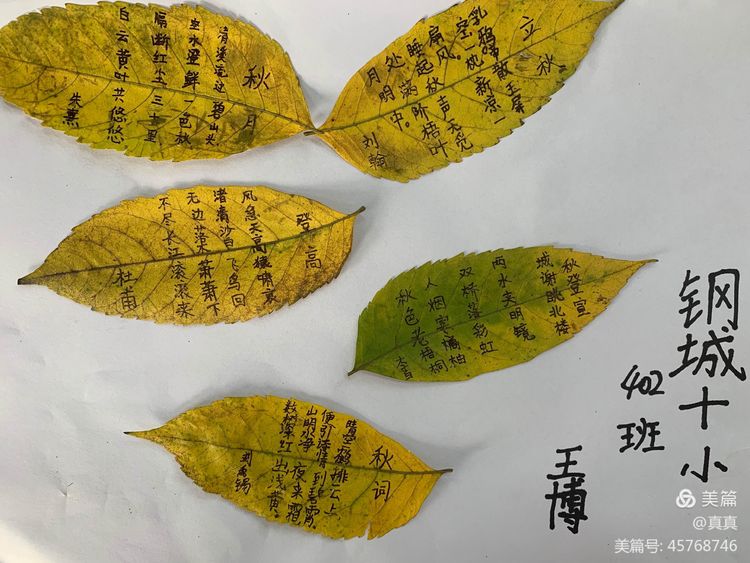 秋月
清溪流过碧山头
空水澄鲜一色秋
隔断红尘三十里
白云黄叶共悠悠
朱熹
立秋
乳鸦啼散玉屏
空一枕新凉一
扇风。
睡起秋声无觅
处满阶梧叶
月明中。
刘翰
登高
风急天高猿啸哀
渚清沙白飞鸟回
无边落木萧萧下
不尽长江滚滚来
杜甫
秋登宣
城谢眺北楼
两水夹明镜
双桥落彩虹
人烟寒橘柚
秋色老梧桐
李白
秋词
晴空一鹤排云上
便引诗情到碧霄
山明水净夜来霜
数树深红出浅黄
刘禹锡
钢城十小
402班
王博
美篇
@真真
美篇号: 45768746